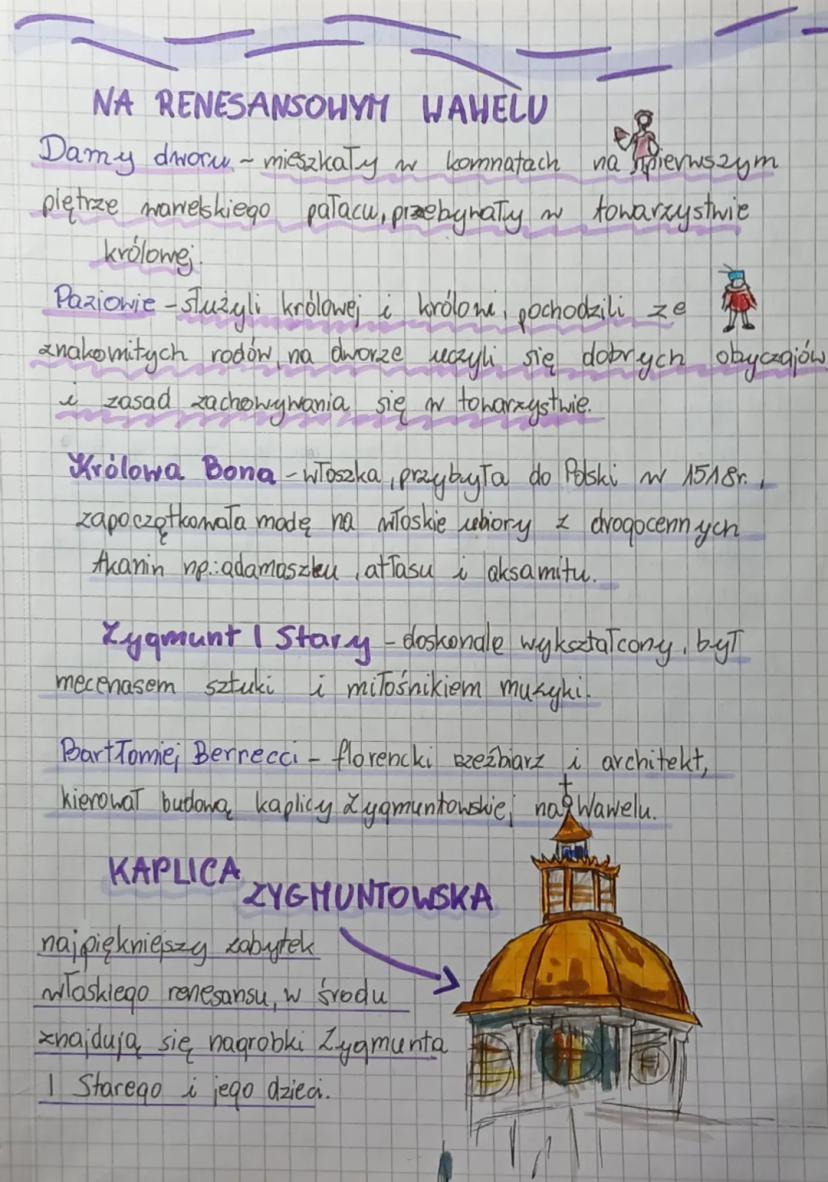 NA RENESANSOWYM WAWELU
Damy dworu - mieszkały w komnatach na pierwszym
piętrze wawelskiego pałacu, przebywały w towarzystwie
królowej.
Paziowie - służyli królowej i królowi, pochodzili ze
znakomitych rodów, na dworze uczyli się dobrych obyczajów
i zasad zachowywania się w towarzystwie.
Królowa Bona - włoszka, przybyła do Polski w 1518r.,
zapoczątkowała modę na włoskie ubiory z drogocennych
tkanin np.: adamaszku, atłasu i aksamitu.
Zygmunt I Stary - doskonale wykształcony, był
mecenasem sztuki i miłośnikiem muzyki.
Bartłomiej Berrecci - florencki rzeźbiarz i architekt,
kierował budową kaplicy Zygmuntowskiej na Wawelu.
KAPLICA
ZYGMUNTOWSKA
najpiękniejszy zabytek
włoskiego renesansu, w środu
znajdują się nagrobki Zygmunta
I Starego i jego dzieci.